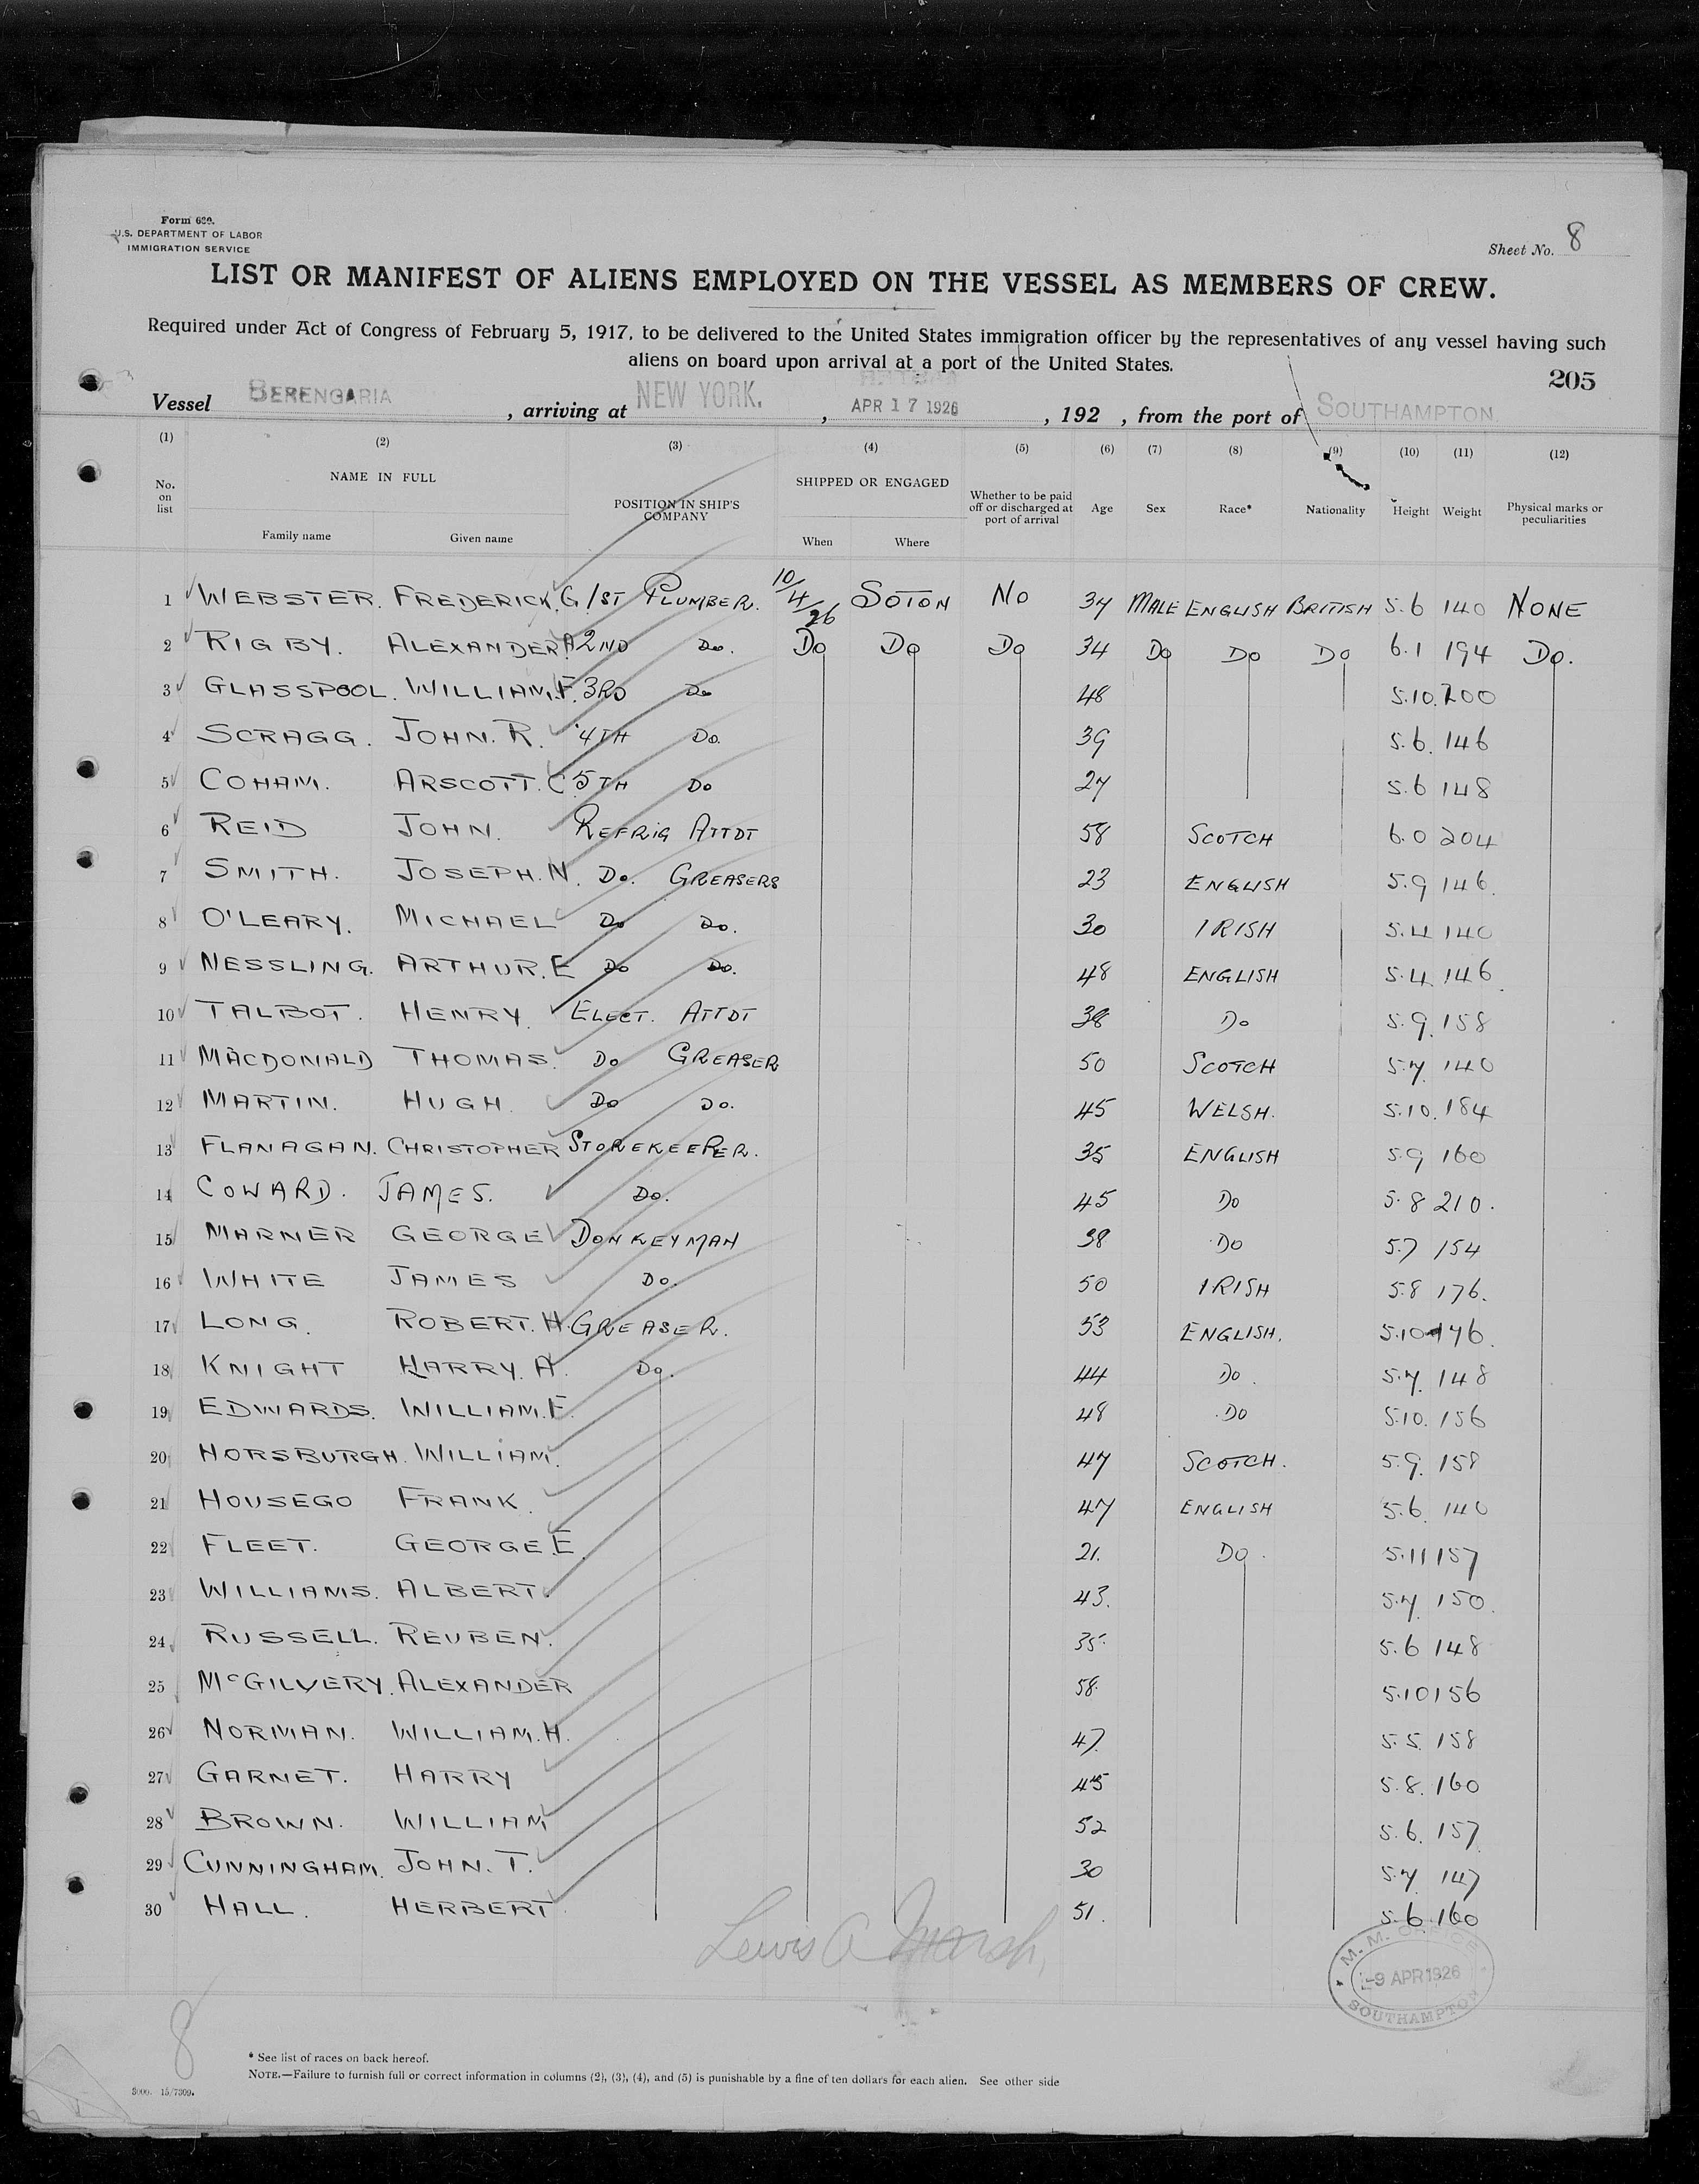 Form 689.
U.S. DEPARTMENT OF LABOR
IMMIGRATION SERVICE
Sheet No. 8
LIST OR MANIFEST OF ALIENS EMPLOYED ON THE VESSEL AS MEMBERS OF CREW.
Required under Act of Congress of February 5, 1917, to be delivered to the United States immigration officer by the representatives of any vessel having such
aliens on board upon arrival at a port of the United States.
205
Vessel BERENGARIA, arriving at NEW YORK., APR 17 1926, 192 , from the port of SOUTHAMPTON
(1) (2) (3) (4) (5) (6) (7) (8) (9) (10) (11) (12)
No. on list NAME IN FULL POSITION IN SHIP'S COMPANY SHIPPED OR ENGAGED Whether to be paid off or discharged at port of arrival Age Sex Race* Nationality Height Weight Physical marks or peculiarities
Family name Given name When Where
1 WEBSTER. FREDERICK. G 1ST PLUMBER. 10/4/26 SOTON NO 34 MALE ENGLISH BRITISH 5.6 140 NONE
2 RIGBY. ALEXANDER. A 2ND DO. DO DO DO 34 DO DO DO 6.1 194 DO.
3 GLASSPOOL. WILLIAM. F. 3RD DO 48 5.10. 200
4 SCRAGG. JOHN. R. 4TH DO. 39 5.6. 146
5 COHAM. ARSCOTT. C. 5TH DO 27 5.6 148
6 REID JOHN. REFRIG ATTDT 58 SCOTCH 6.0 204
7 SMITH. JOSEPH. N. DO. GREASERS 23 ENGLISH 5.9 146.
8 O'LEARY. MICHAEL DO DO. 30 IRISH 5.4 140
9 NESSLING. ARTHUR. E DO DO. 48 ENGLISH 5.4. 146
10 TALBOT. HENRY. ELECT. ATTDT 38 DO 5.9. 158
11 MACDONALD THOMAS. DO GREASER 50 SCOTCH 5.7. 140
12 MARTIN. HUGH. DO DO. 45 WELSH. 5.10. 184
13 FLANAGAN. CHRISTOPHER STOREKEEPER. 35 ENGLISH 5.9 160
14 COWARD. JAMES. DO. 45 DO 5.8 210.
15 MARNER GEORGE DONKEYMAN 38 DO 5.7 154
16 WHITE JAMES DO. 50 IRISH 5.8 176.
17 LONG. ROBERT. H. GREASER. 53 ENGLISH. 5.10 176.
18 KNIGHT HARRY. A. DO. 44 DO. 5.7. 148
19 EDWARDS. WILLIAM. F. 48 DO 5.10. 156
20 HORSBURGH. WILLIAM. 47 SCOTCH. 5.9. 158
21 HOUSEGO FRANK. 47 ENGLISH 5.6. 140
22 FLEET. GEORGE. E. 21. DO. 5.11 157
23 WILLIAMS. ALBERT. 43. 5.7. 150.
24 RUSSELL. REUBEN. 35. 5.6 148
25 McGILVERY. ALEXANDER 58. 5.10 156
26 NORMAN. WILLIAM. H. 47. 5.5. 158
27 GARNET. HARRY 45 5.8. 160
28 BROWN. WILLIAM 52 5.6. 157.
29 CUNNINGHAM. JOHN. T. 30 5.7. 147
30 HALL. HERBERT 51. 5.6. 160
Lewis A Marsh,
M. M. OFFICE
9 APR 1926
SOUTHAMPTON
8
* See list of races on back hereof.
NOTE.—Failure to furnish full or correct information in columns (2), (3), (4), and (5) is punishable by a fine of ten dollars for each alien. See other side
3000. 15/7309.